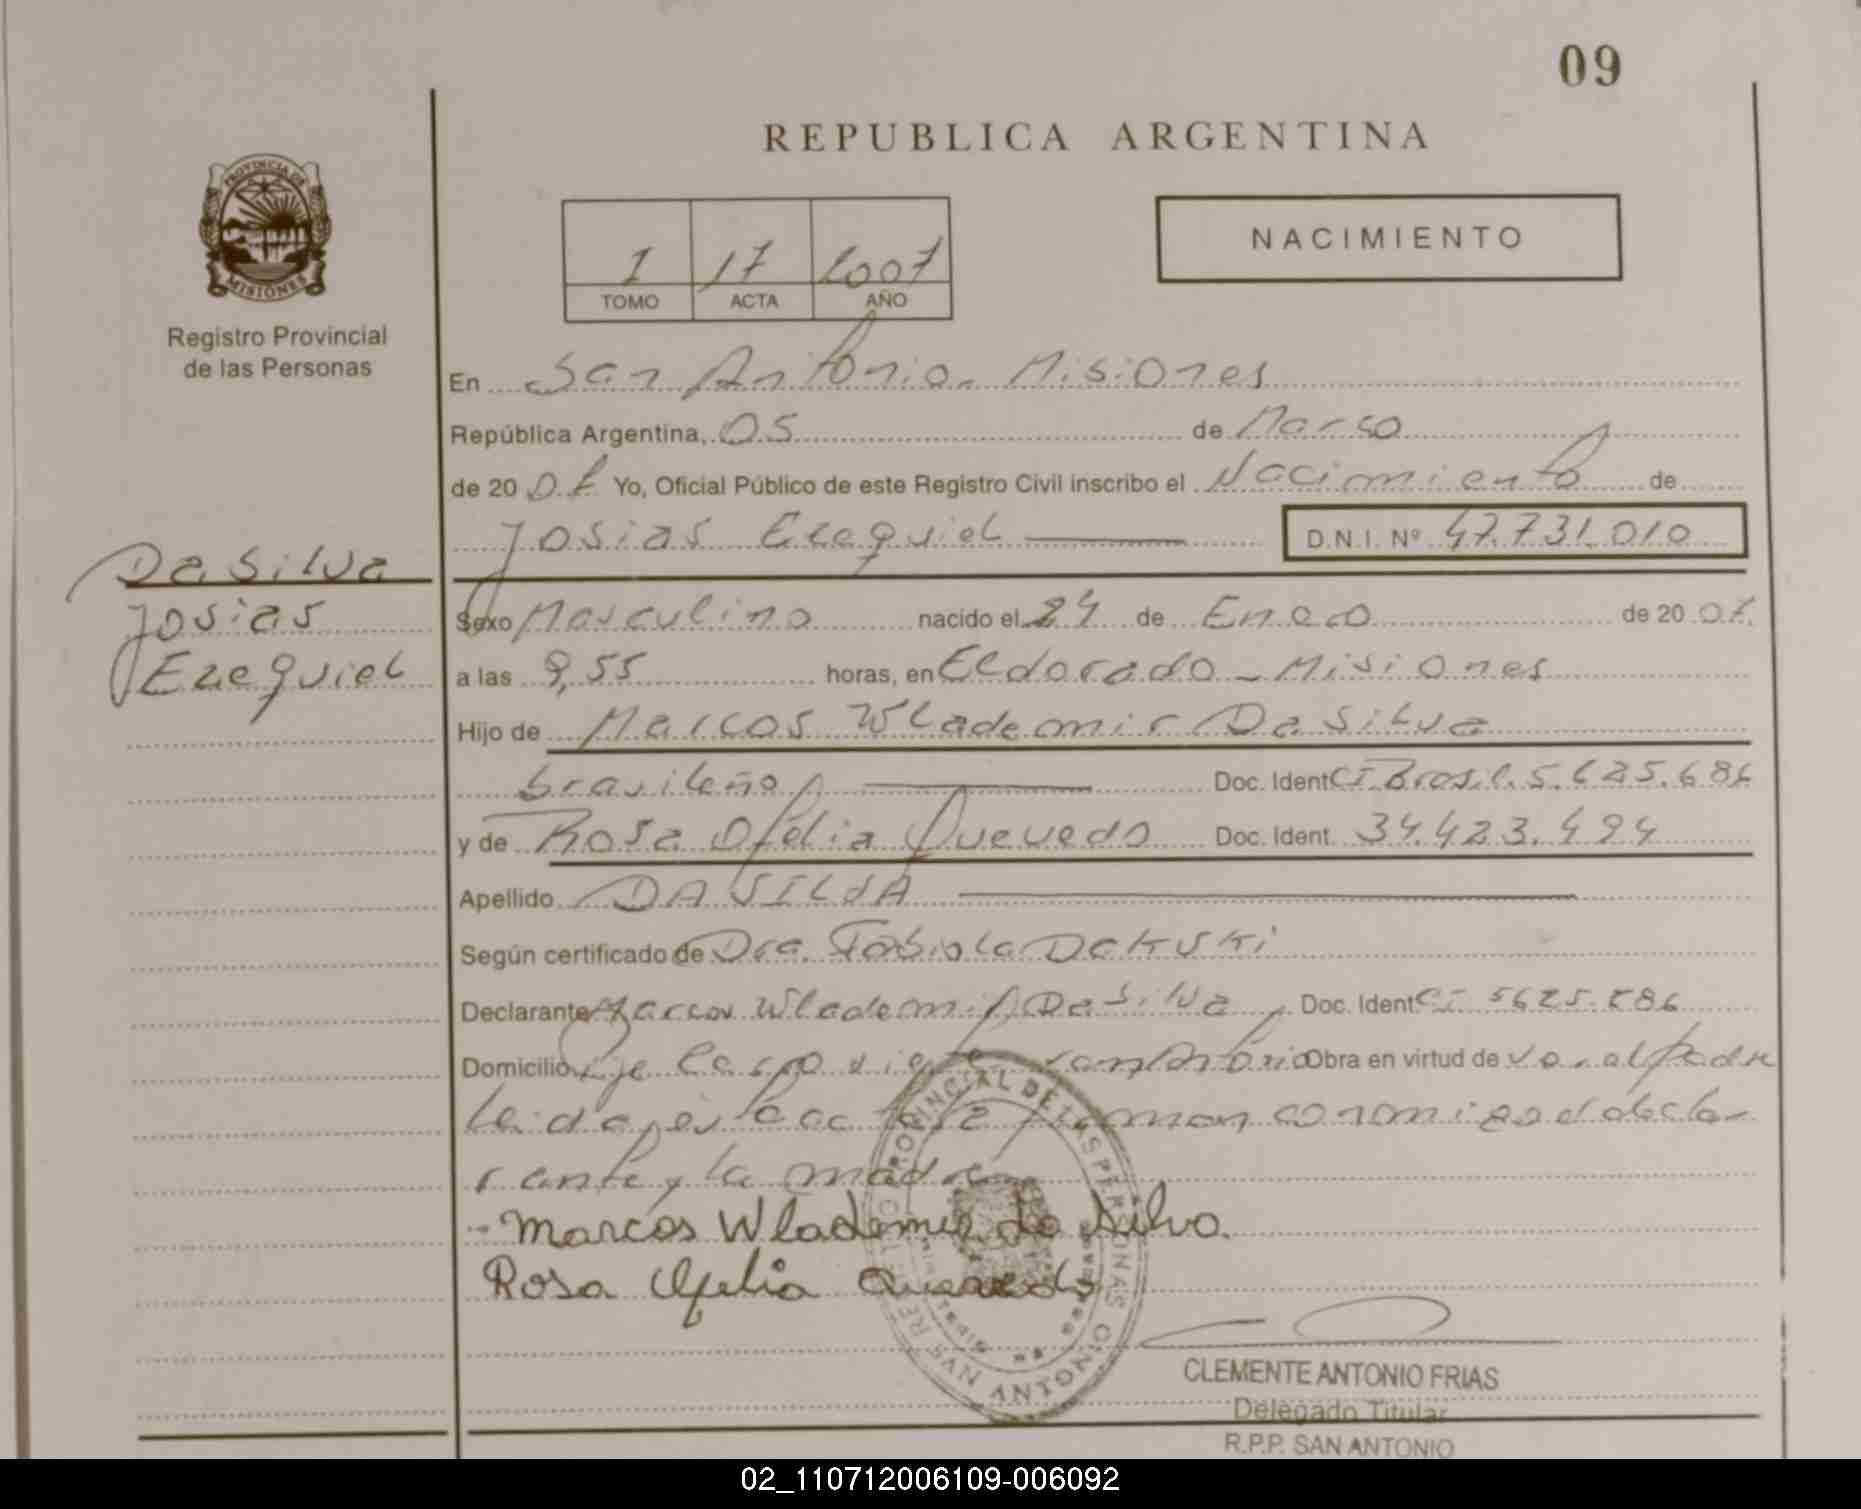 09
REPUBLICA ARGENTINA
PROVINCIA DE
MISIONES
Registro Provincial
de las Personas
1 17 2007
TOMO ACTA AÑO
NACIMIENTO
En San Antonio - Misiones
República Argentina, 05 de Marso
de 20 07 Yo, Oficial Público de este Registro Civil inscribo el Nacimiento de
Josias Ezequiel D.N.I. Nº 47.731.010
Da Silva
Josias
Ezequiel
Sexo Masculino nacido el 24 de Enero de 20 07.
a las 9,55 horas, en Eldorado - Misiones
Hijo de Marcos Wlademir Da Silva
brasileño Doc. Ident CI Brasil. 5.625.686
y de Rosa Ofelia Quevedo Doc. Ident. 34.423.494
Apellido DA SILVA
Según certificado de Dra. Fabiola Dakuki
Declarante Marcos Wlademir Da Silva Doc. Ident CI 5625.686
Domicilio San Antonio Obra en virtud de ser el Padre
Leida el acta firman conmigo el decla-
rante y la madre
Marcos Wlademir da Silva.
Rosa Ofelia Quevedo
PROVINCIAL DE LAS PERSONAS
SAN ANTONIO
CLEMENTE ANTONIO FRIAS
Delegado Titular
R.P.P. SAN ANTONIO
02_110712006109-006092